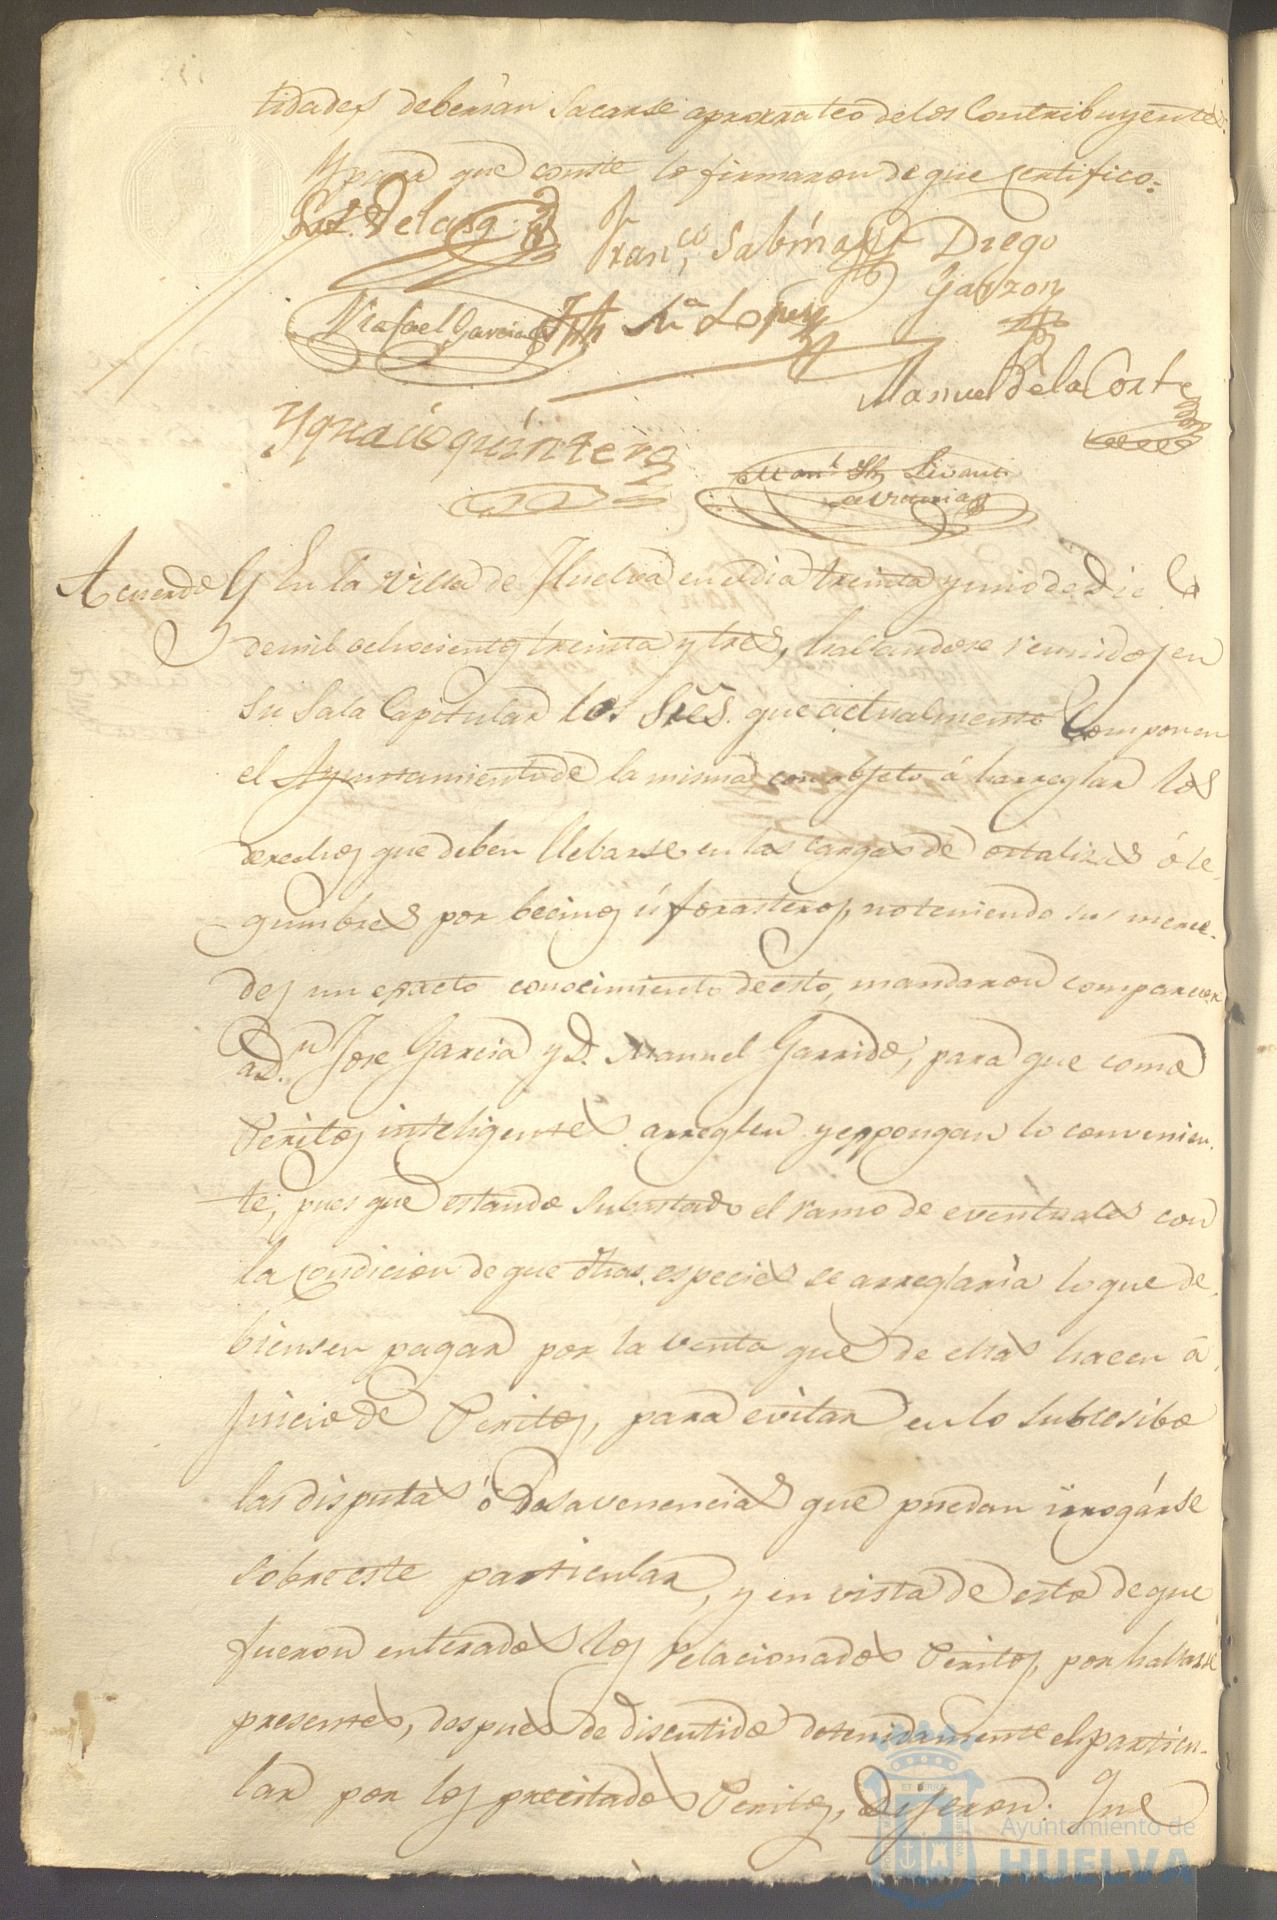 tidades deberian Sacarse aprorrateo delos Contribuyentes.
Y para que conste lo firmaron de que certifico=
Franco Sabina Diego
Garzon
Rafael Garcia Ma Lopez
Manuel De la Corte
Ygnacio quintero
Acuerdo
En la villa de Huelva en el dia treinta y uno de Dice
demil ochocientos treinta y tres, hallandose reunidos en
su Sala Capitular los Sres. que actualmente Componen
el Ayuntamiento de la misma con objeto á harreglar los
derechos que deben llebarse en las cargas de ortalizas ó le-
gumbres por becinos ú forasteros, no teniendo sus merce-
des un exacto conocimiento de esto, mandaron comparecer
a Dn Jose Garcia y D. Manuel Garrido, para que como
Peritos inteligentes arreglen y expongan lo convenien-
te, pues que estando subastado el ramo de eventuales con
la condicion de que dhas. especies se arreglaria lo que de-
biensen pagar por la venta que de ellas hacen á
juicio de Peritos, para evitar en lo subcesibo
las disputas ó desavenencias que puedan irrogárse
sobre este particular, y en vista de esto de que
fueron enterados los relacionados Peritos, por hallarse
presentes, despues de discutido detenidamente el particu-
lar por los precitados Peritos, Dijeron: Que
Ayuntamiento de
HUELVA